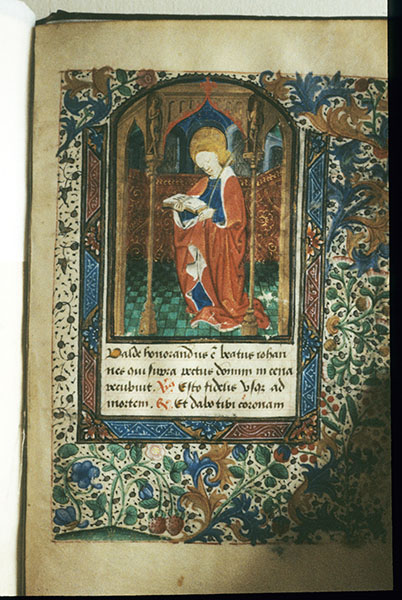 Valde honorandus ē beatus iohan
nes qui supra pectus domini in cena
recubuit. V̷. Esto fidelis usq̄ ad
mortem. R̷. Et dabo tibi coronam